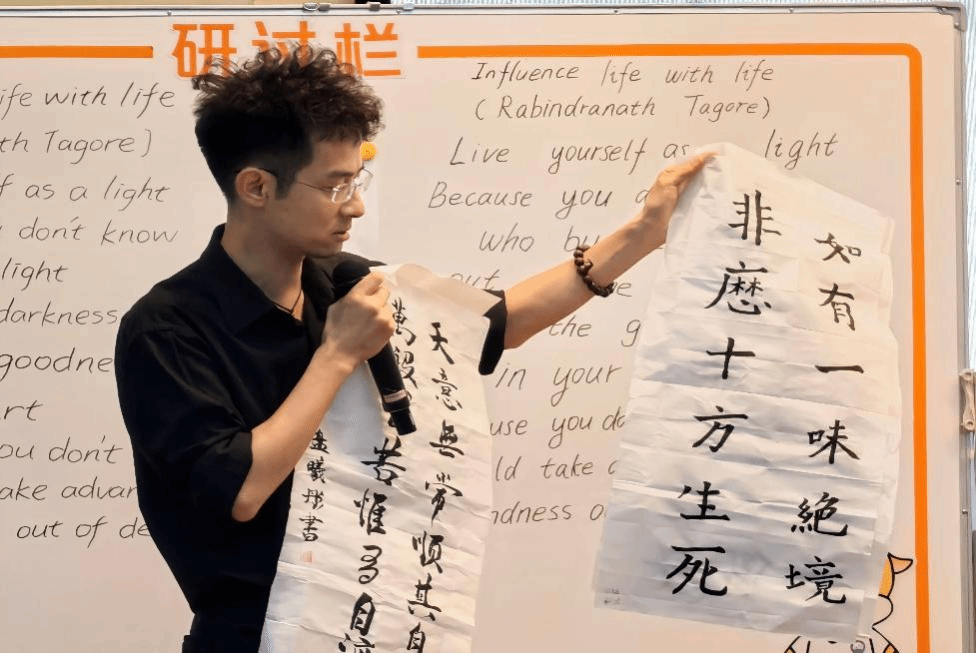 研讨栏
ife with life
th Tagore)
f as a light
don't know
light
darkness
goodne
art
ou don't
ake advan
out of de
Influence life with life
(Rabindranath Tagore)
Live yourself as light
Because you
who bu
out ve
the g
in your
use you do
ld take a
ndness o
天意無常順其自
萬般 苦惟 自
書
如有一味絶境
非歷十方生死